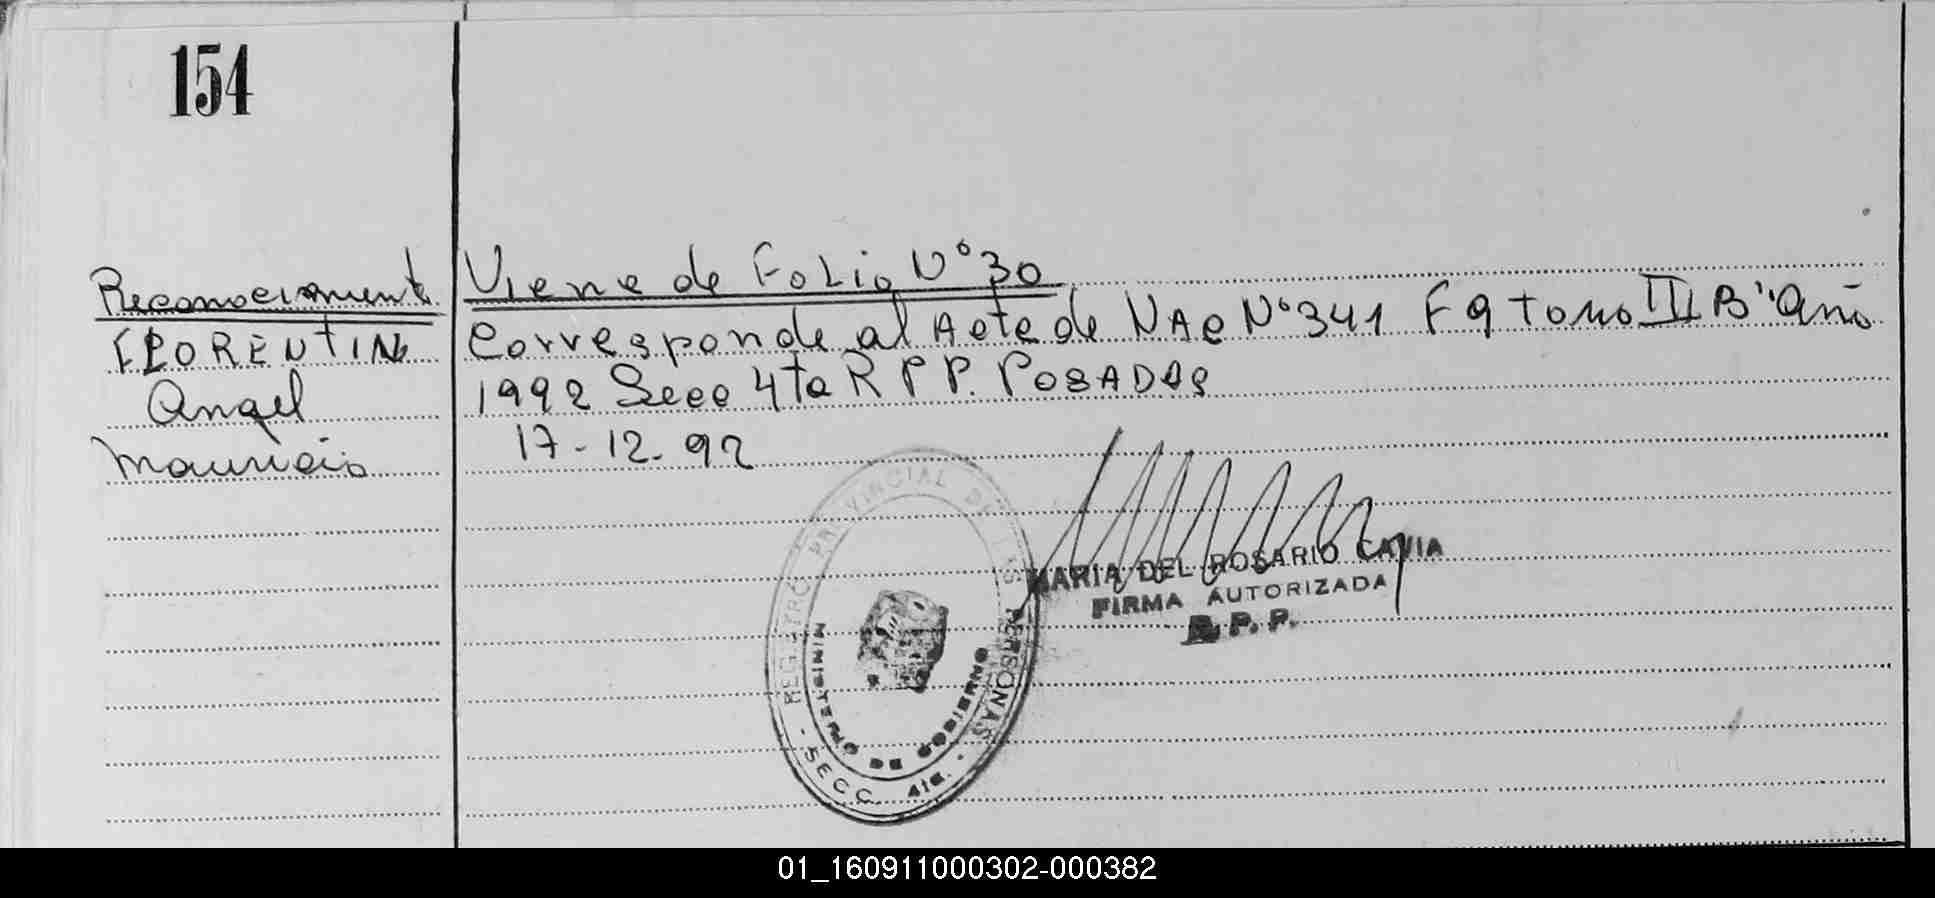 154
Reconocimiento
FLORENTIN
Angel
Mauricio
Viene de Folio N° 30
Corresponde al Acta de NAC N° 341 F 9 tomo III B" Año
1992 Secc 4ta R P P. POSADAS
17-12-92
REGISTRO PROVINCIAL DE LAS PERSONAS
MINISTERIO DE GOBIERNO
- SECC. 4ta. -
MARIA DEL ROSARIO CAVIA
FIRMA AUTORIZADA
R. P. P.
01_160911000302-000382